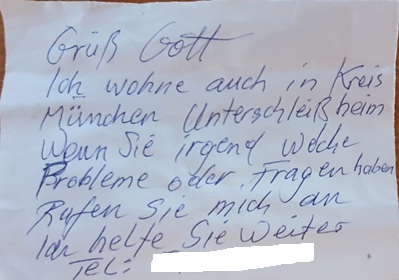 Grüß Gott
Ich wohne auch in Kreis
München Unterschleißheim
Wenn Sie irgend welche
Probleme oder Fragen haben
Rufen Sie mich an
Ich helfe Sie weiter
Tel: